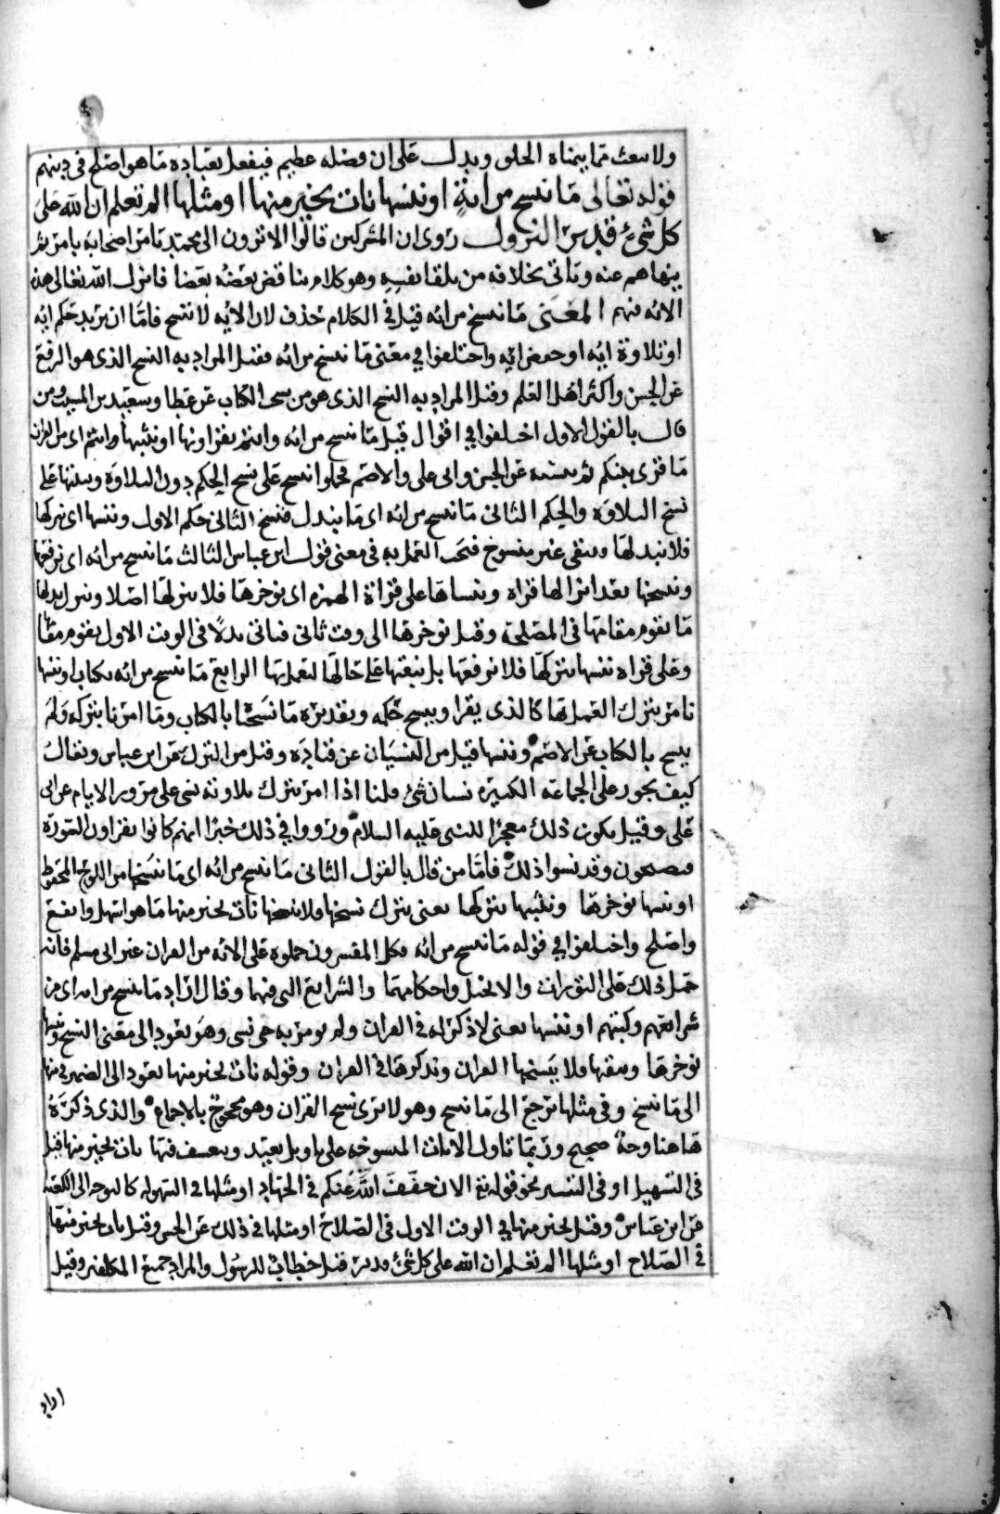 ولا يبعث مما يتمناه الخلق ويدل على ان فضله عظيم فيفعل بعباده ما هو اصلح في دينهم
قوله تعالى ما ننسخ من اية او ننسها نات بخير منها او مثلها الم تعلم ان الله على
كل شئ قدير النزول روى ان المشركين قالوا الا ترون الى محمد يامر اصحابه بامر ثم
ينهاهم عنه وياتى بخلافه من تلقا نفسه وهو كلام يناقض بعضه بعضا فانزل الله تعالى هذه
الايه فيهم المعنى ما ننسخ من ايه قيل في الكلام حذف لان الايه لا تنسخ فاما ان يريد حكم ايه
او تلاوة ايه او جمعهما واختلفوا في معنى ما ننسخ من ايه فقيل المراد به النسخ الذى هو الرفع
عن الحسن واكثر اهل العلم وقيل المراد به النسخ الذى هو من نسخ الكتاب عن عطا وسعيد بن المسيب ومن
قال بالقول الاول اختلفوا في اقوال قيل ما ننسخ من ايه وانتم تقراونها او ننسها اى من القران
ما قرى بينكم ثم نسيته عن الحسن وابى على والاصم حملوا ننسخ على نسخ الحكم دون التلاوة وننسها على
نسخ التلاوه والحكم الثانى ما ننسخ من ايه اى ما نبدل فننسخ الثانى حكم الاول وننسها اى نتركها
فلا نبدلها وتبقى غير منسوخ فتجب العمل به في معنى قول ابن عباس الثالث ما ننسخ من ايه اى نرفعها
وننسخها بعد انزالها قراه وننساها على قراة الهمزه اى نوخرها فلا ننزلها اصلا وننزل بدلها
ما يقوم مقامها في المصلحة وقيل نوخرها الى وقت ثانى فياتى بدلا في الوقت الاول يقوم مقامها
وعلى قراه ننسها نتركها فلا نرفعها بل نبقيها على حالها لتعمل بها الرابع ما ننسخ من ايه بكتاب او ننسها
نامر بترك العمل بها كالذى يقرا وينسخ حكمه وتقديره ما نسخنا بالكتاب وما امرنا بتركه ولم
ينسخ بالكتاب عن الاصم وننسها قيل من النسيان عن قتادة وقيل من الترك عن ابن عباس ويقال
كيف يجوز على الجماعه الكبيرة نسان شئ قلنا اذا امر بترك تلاوته نسى على مرور الايام عن ابى
على وقيل يكون ذلك معجزا للنبى عليه السلام ورووا في ذلك خبرا انهم كانوا يقراون السورة
فيصبحون وقد نسوا ذلك فاما من قال بالقول الثانى ما ننسخ من ايه اى ما ننسخها من اللوح المحفوظ
او ننسها نوخرها وننسها نتركها يعنى نترك نسخها فلا ننسخها نات بخير منها ما هو اسهل وانفع
واصلح واختلفوا في قوله ما ننسخ من ايه فكل المفسرون حملوه على الايه من القران غير ابى مسلم فانه
حمل ذلك على التوراة والانجيل واحكامهما والشرايع التى فيهما وقال اراد ما ننسخ من ايه اى من
شرايعهم وكتبهم او ننسها يعنى لا ذكر له في القران ولم يومر به حتى نسى وهو يعود الى معنى النسخ
نوخرها ونبقها ولا ينسخها القران ونذكرها في القران وقوله نات بخير منها يعود الى الضمير في منها
الى ما ننسخ وفي مثلها ترجع الى ما ننسخ وهو لا يرى نسخ القران وهو محجوج بالاجماع والذى ذكره
هاهنا وجه صحيح وربما تاول الايات المنسوخه على تاويل بعيد ويعسف فيها نات بخير منها قيل
في التسهيل او في التيسير نحو قوله الان خفف الله عنكم في الجهاد او مثلها في السهوله كالتوجه الى الكعبه
عن ابن عباس وقيل بخير منها في الوقت الاول في الصلاح او مثلها في ذلك عن الحسن وقيل نات بخير منها
في الصلاح او مثلها الم تعلم ان الله على كل شئ قدير قيل خطاب للرسول والمراد جميع المكلفين وقيل